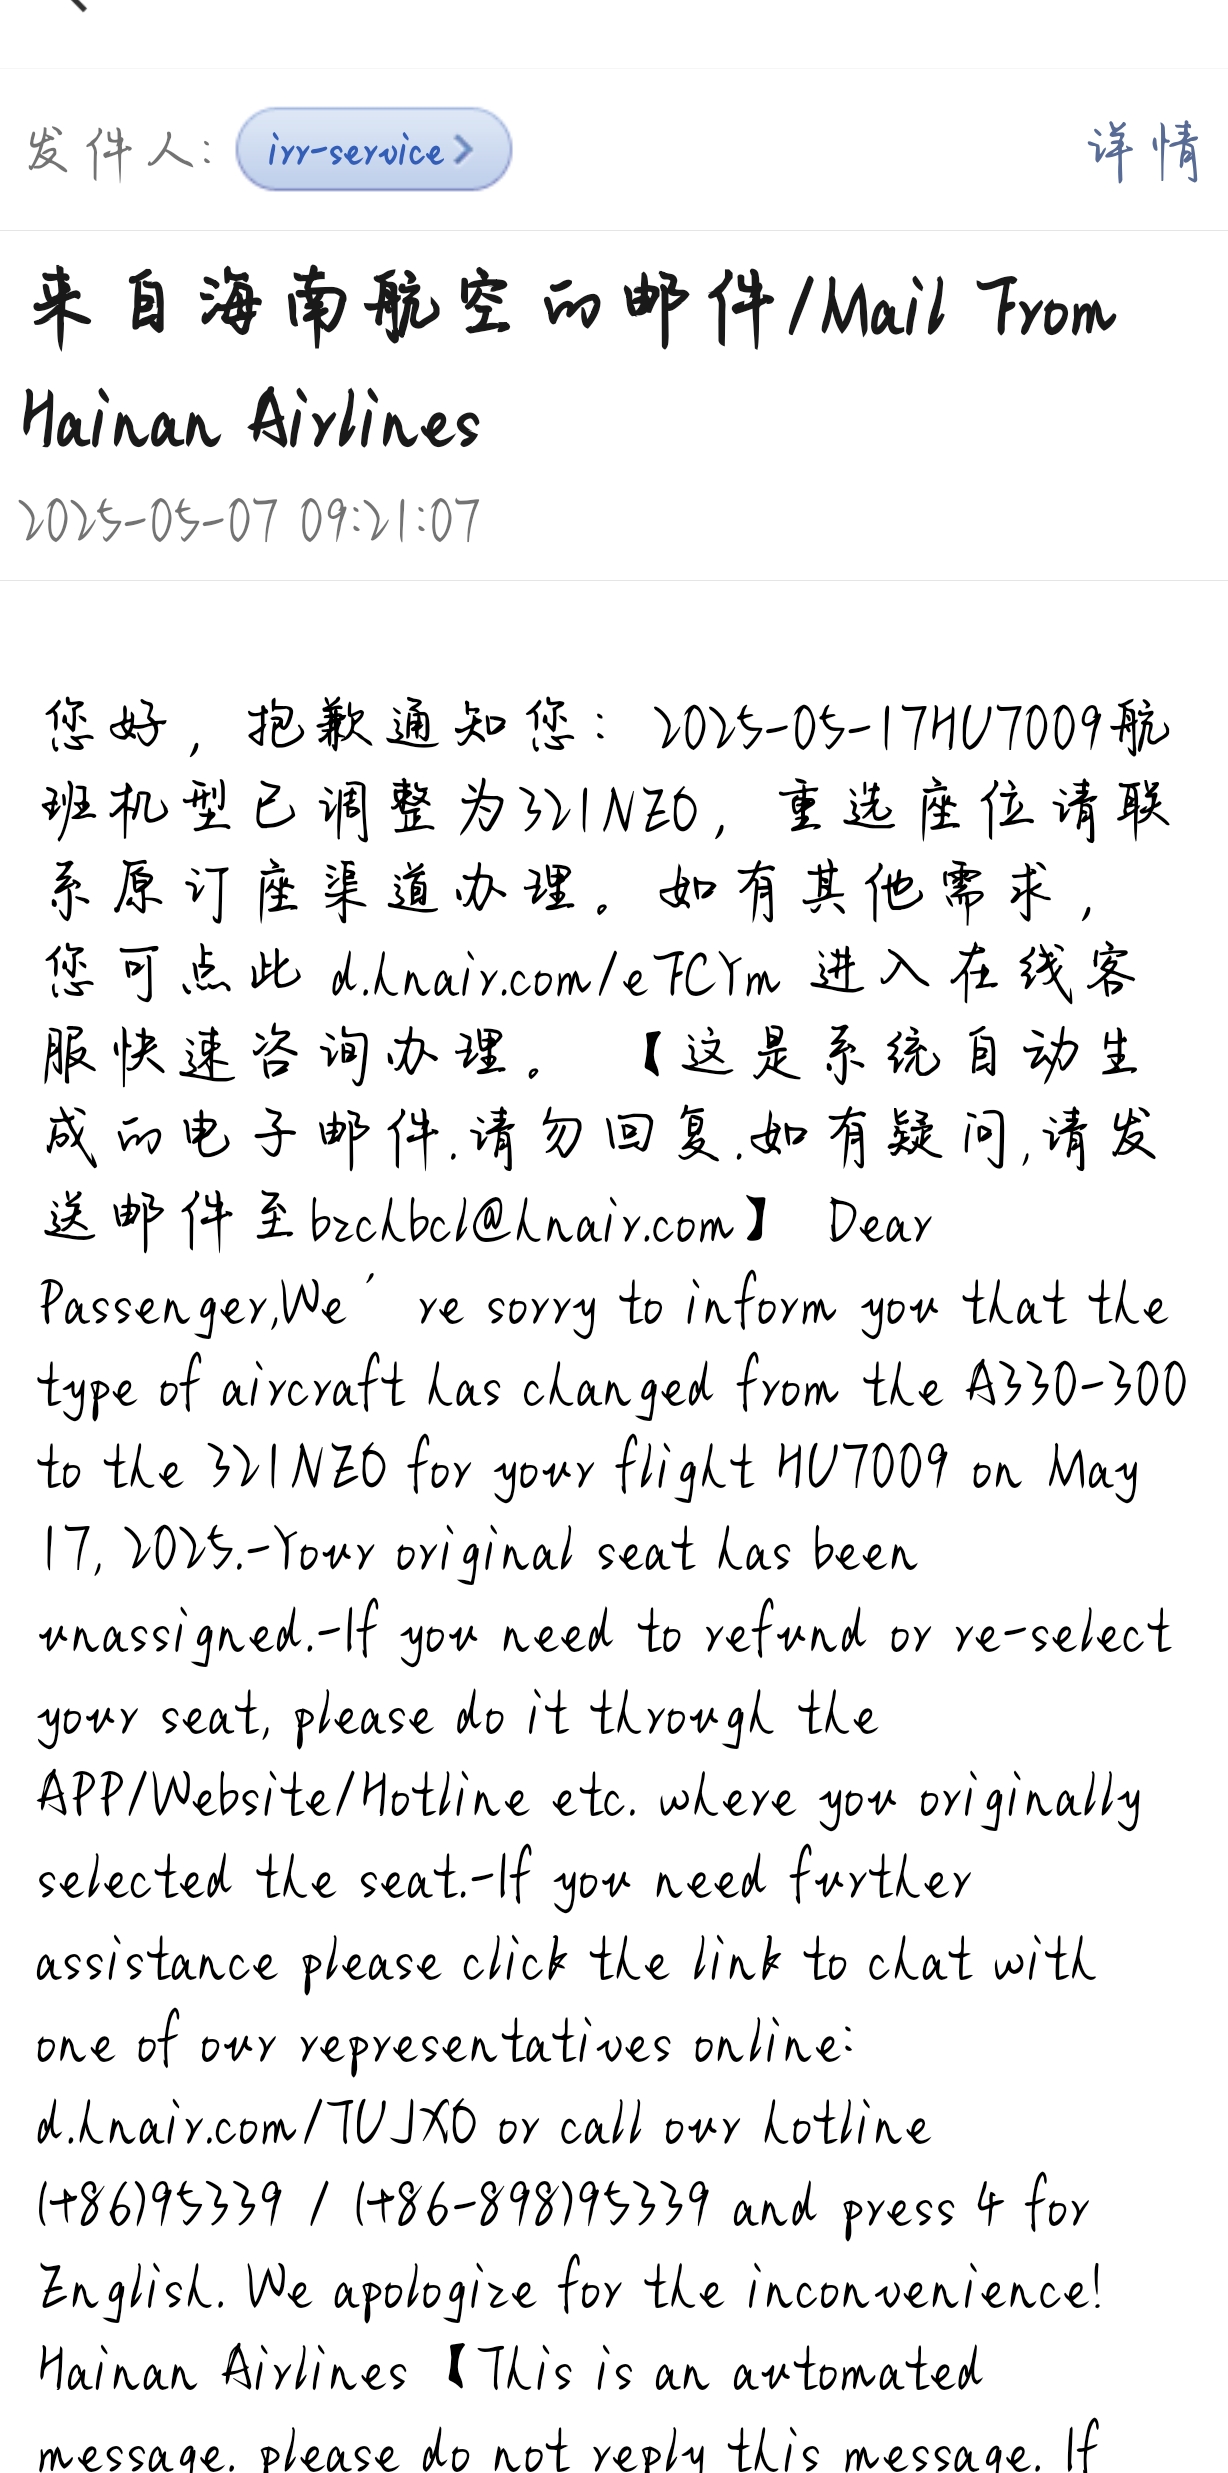 发件人: irr-service 详情
来自海南航空的邮件/Mail From
Hainan Airlines
2025-05-07 09:21:07
您好，抱歉通知您：2025-05-17HU7009航
班机型已调整为321NEO，重选座位请联
系原订座渠道办理。如有其他需求，
您可点此 d.hnair.com/eTCYm 进入在线客
服快速咨询办理。 【这是系统自动生
成的电子邮件.请勿回复.如有疑问,请发
送邮件至bzchbcl@hnair.com】 Dear
Passenger,We′re sorry to inform you that the
type of aircraft has changed from the A330-300
to the 321NEO for your flight HU7009 on May
17, 2025.-Your original seat has been
unassigned.-If you need to refund or re-select
your seat, please do it through the
APP/Website/Hotline etc. where you originally
selected the seat.-If you need further
assistance please click the link to chat with
one of our representatives online:
d.hnair.com/TUJXO or call our hotline
(+86)95339 / (+86-898)95339 and press 4 for
English. We apologize for the inconvenience!
Hainan Airlines 【This is an automated
message. please do not reply this message. If